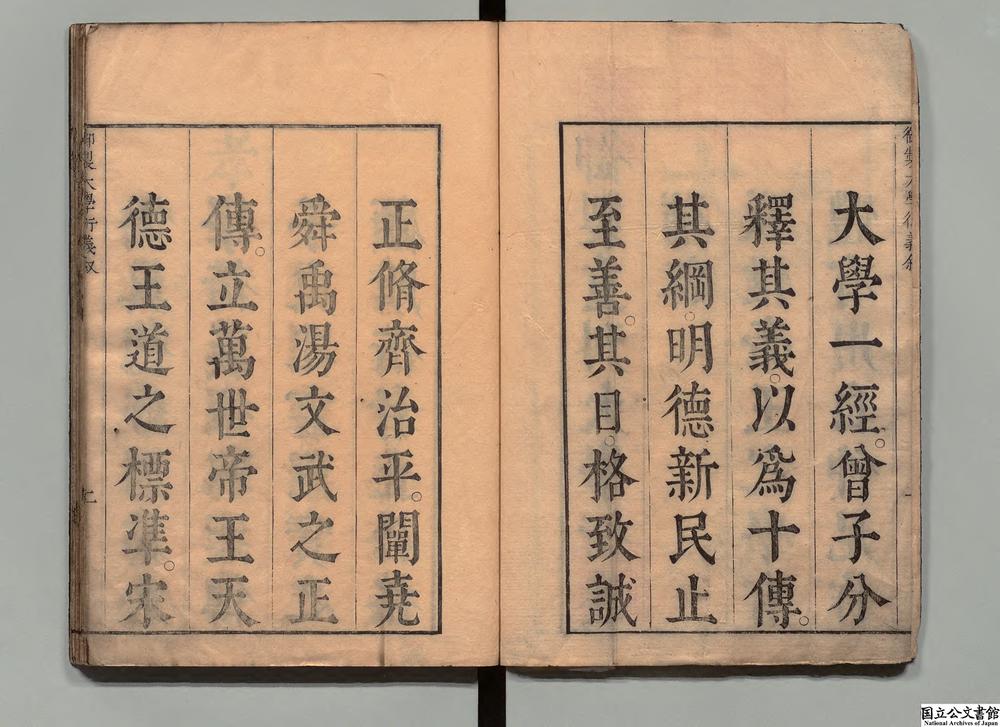 大學一經。曾子分
釋其義。以爲十傳。
其綱。明德新民止
至善。其目。格致誠
正脩齊治平。闡堯
舜禹湯文武之正
傳。立萬世帝王天
德王道之標準。宋
国立公文書館
National Archives of Japan